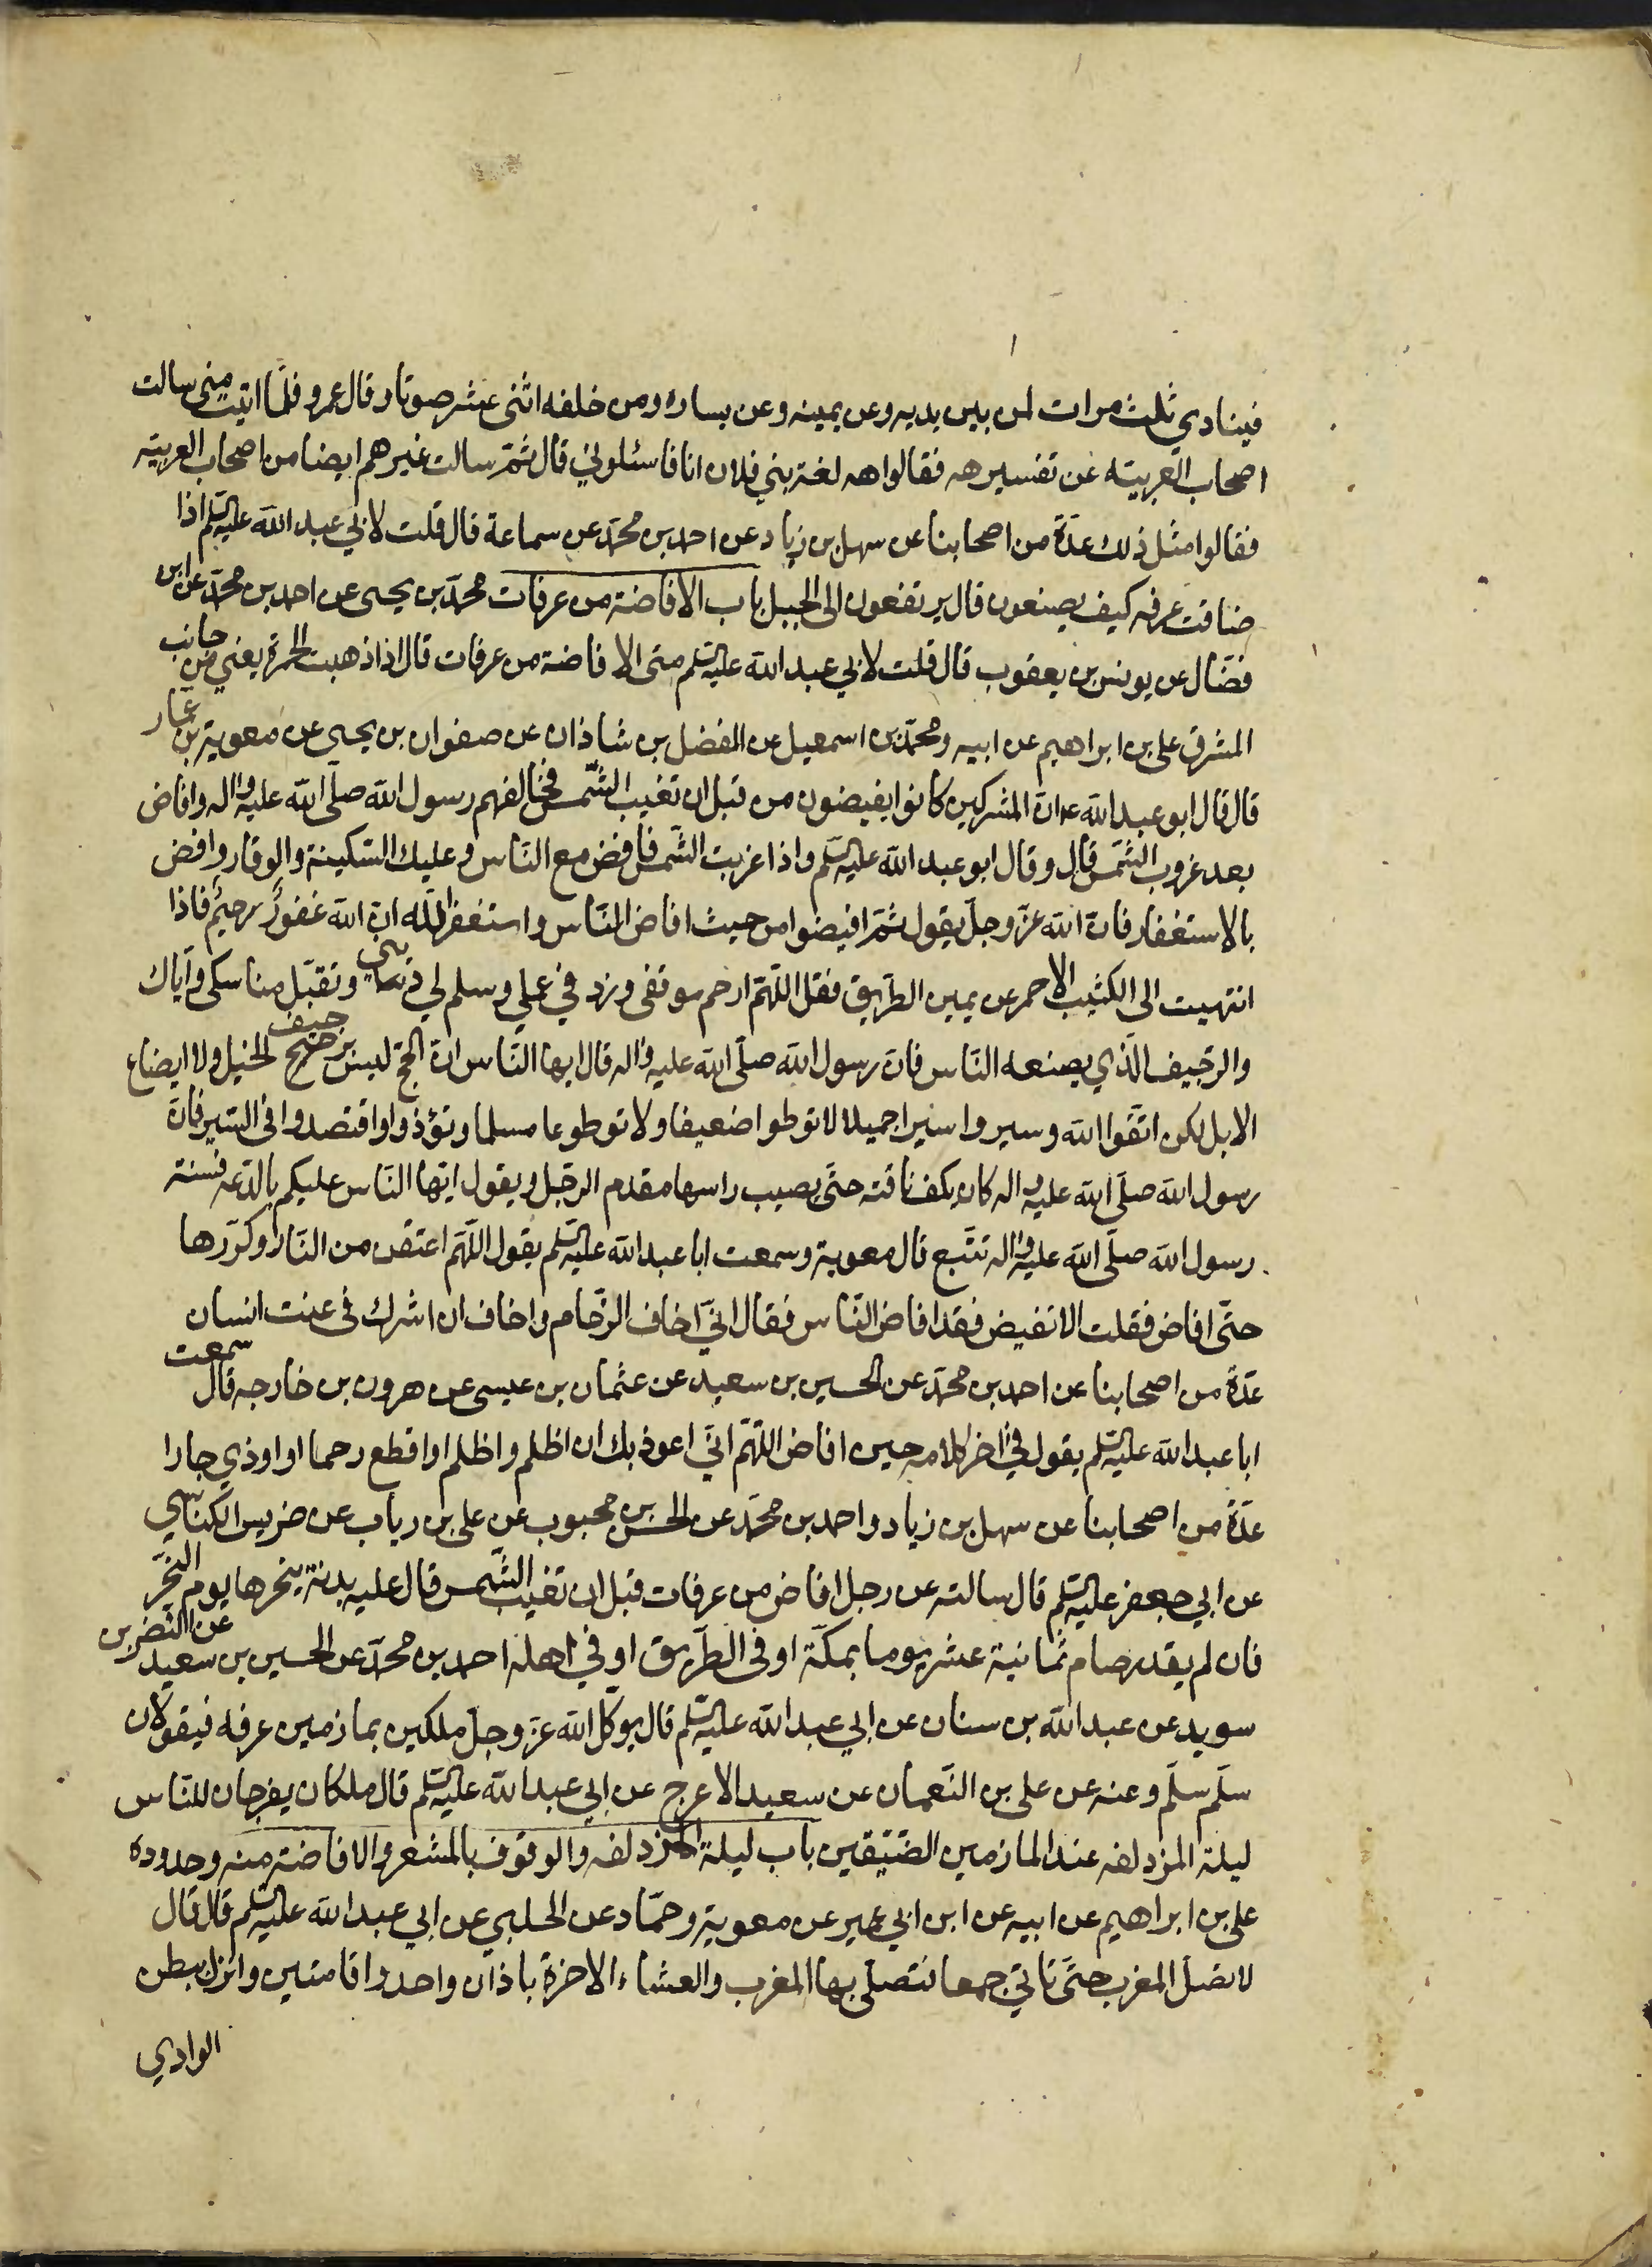 فينادي ثلث مرات لمن بين يديه وعن يمينه وعن يساره ومن خلفه اثنى عشر صوتا وقال عمرو فلما اتيت منى سالت
اصحاب العربيته عن تفسير هه فقالوا هه لغة بني فلان انا فاسئلوني قال ثم سالت غيرهم ايضا من اصحاب العربيته
فقالوا مثل ذلك عدّة من اصحابنا عن سهل بن زياد عن احمد بن محمد عن سماعة قال قلت لابي عبد الله عليه السلم اذا
ضاقت عرفه كيف يصنعون قال يرتفعون الى الجبل باب الافاضة من عرفات محمد بن يحيى عن احمد بن محمد عن ابن
فضّال عن يونس بن يعقوب قال قلت لابي عبد الله عليه السلم متى الافاضة من عرفات قال اذا ذهبت الحمرة يعني من جانب
المشرق على بن ابراهيم عن ابيه ومحمد بن اسمعيل عن الفضل بن شاذان عن صفوان بن يحيى عن معوية بن عمار
قال قال ابو عبد الله ع ان المشركين كانوا يفيضون من قبل ان تغيب الشمس فخالفهم رسول الله صلى الله عليه واله وافاض
بعد غروب الشمس قال وقال ابو عبد الله عليه السلم واذا غربت الشمس فافض مع الناس وعليك السكينة والوقار وافض
بالاستغفار فان الله عز وجل يقول ثم افيضوا من حيث افاض الناس واستغفر الله ان الله غفور رحيم فاذا
انتهيت الى الكثيب الاحمر عن يمين الطريق فقل اللهم ارحم موقفى وزد في علي وسلم لي ديني وتقبل مناسكى وآياك
والرجيف الذي يصنعه الناس فان رسول الله صلى الله عليه واله قال ايها الناس ان الحج ليس بوجيف الخيل ولا ايضاع
الابل لكن اتقوا الله وسيروا سيرا جميلا لا توطوا ضعيفا ولا توطوعا مسلما وتؤذوا واقتصدوا في السير فان
رسول الله صلى الله عليه واله كان يكف ناقته حتى يصيب راسها مقدم الرجل ويقول ايها الناس عليكم بالدعه فسنة
رسول الله صلى الله عليه واله تتبع قال معوية وسمعت ابا عبد الله عليه السلم يقول اللهم اعتقنى من النار وكررها
حتى افاض فقلت الا تفيض فقد افاض الناس فقال اني اخاف الزحام واخاف ان اشرك في عنت انسان
عدة من اصحابنا عن احمد بن محمد عن الحسين بن سعيد عن عثمان بن عيسى عن هرون بن خارجه قال سمعت
ابا عبد الله عليه السلم يقول في اخر كلامه حين افاض اللهم اني اعوذ بك ان اظلم واظلم او اقطع رحما او اوذي جارا
عدة من اصحابنا عن سهل بن زياد واحمد بن محمد عن الحسن بن محبوب عن على بن رياب عن ضريس الكناسي
عن ابي جعفر عليه السلم قال سالته عن رجل افاض من عرفات قبل ان تغيب الشمس قال عليه بدنة ينحرها يوم النحر
فان لم يقدر صام ثمانية عشر يوما بمكة او فى الطريق او في اهله احمد بن محمد عن الحسين بن سعيد عن النضر بن
سويد عن عبد الله بن سنان عن ابي عبد الله عليه السلم قال يوكل الله عز وجل ملكين بمازمين عرفه فيقولان
سلم سلم وعنه عن على بن النعمان عن سعيد الاعرج عن ابي عبد الله عليه السلم قال ملكان يفرجان للناس
ليلة المزدلفه عند المازمين الضيقين باب ليلة المزدلفه والوقوف بالمشعر والافاضة منه وحدوده
على بن ابراهيم عن ابيه عن ابن ابي عمير عن معوية وحماد عن الحلبي عن ابي عبد الله عليه السلم قال قال
لا تصل المغرب حتى تاتي جمعا فتصلى بها المغرب والعشاء الاخرة باذان واحد واقامتين وانزل ببطن
الوادي